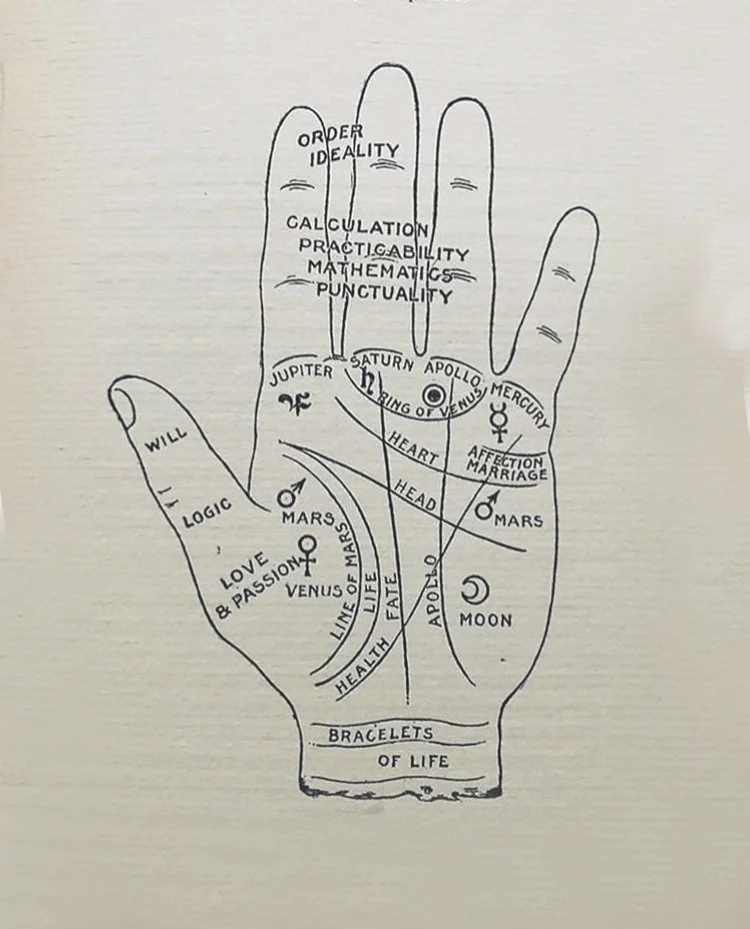 ORDER
IDEALITY
CALCULATION
PRACTICABILITY
MATHEMATICS
PUNCTUALITY
JUPITER
SATURN
APOLLO
MERCURY
RING OF VENUS
HEART
AFFECTION
MARRIAGE
WILL
LOGIC
HEAD
MARS
MARS
LOVE
& PASSION
VENUS
LINE OF MARS
LIFE
FATE
APOLLO
MOON
HEALTH
BRACELETS
OF LIFE